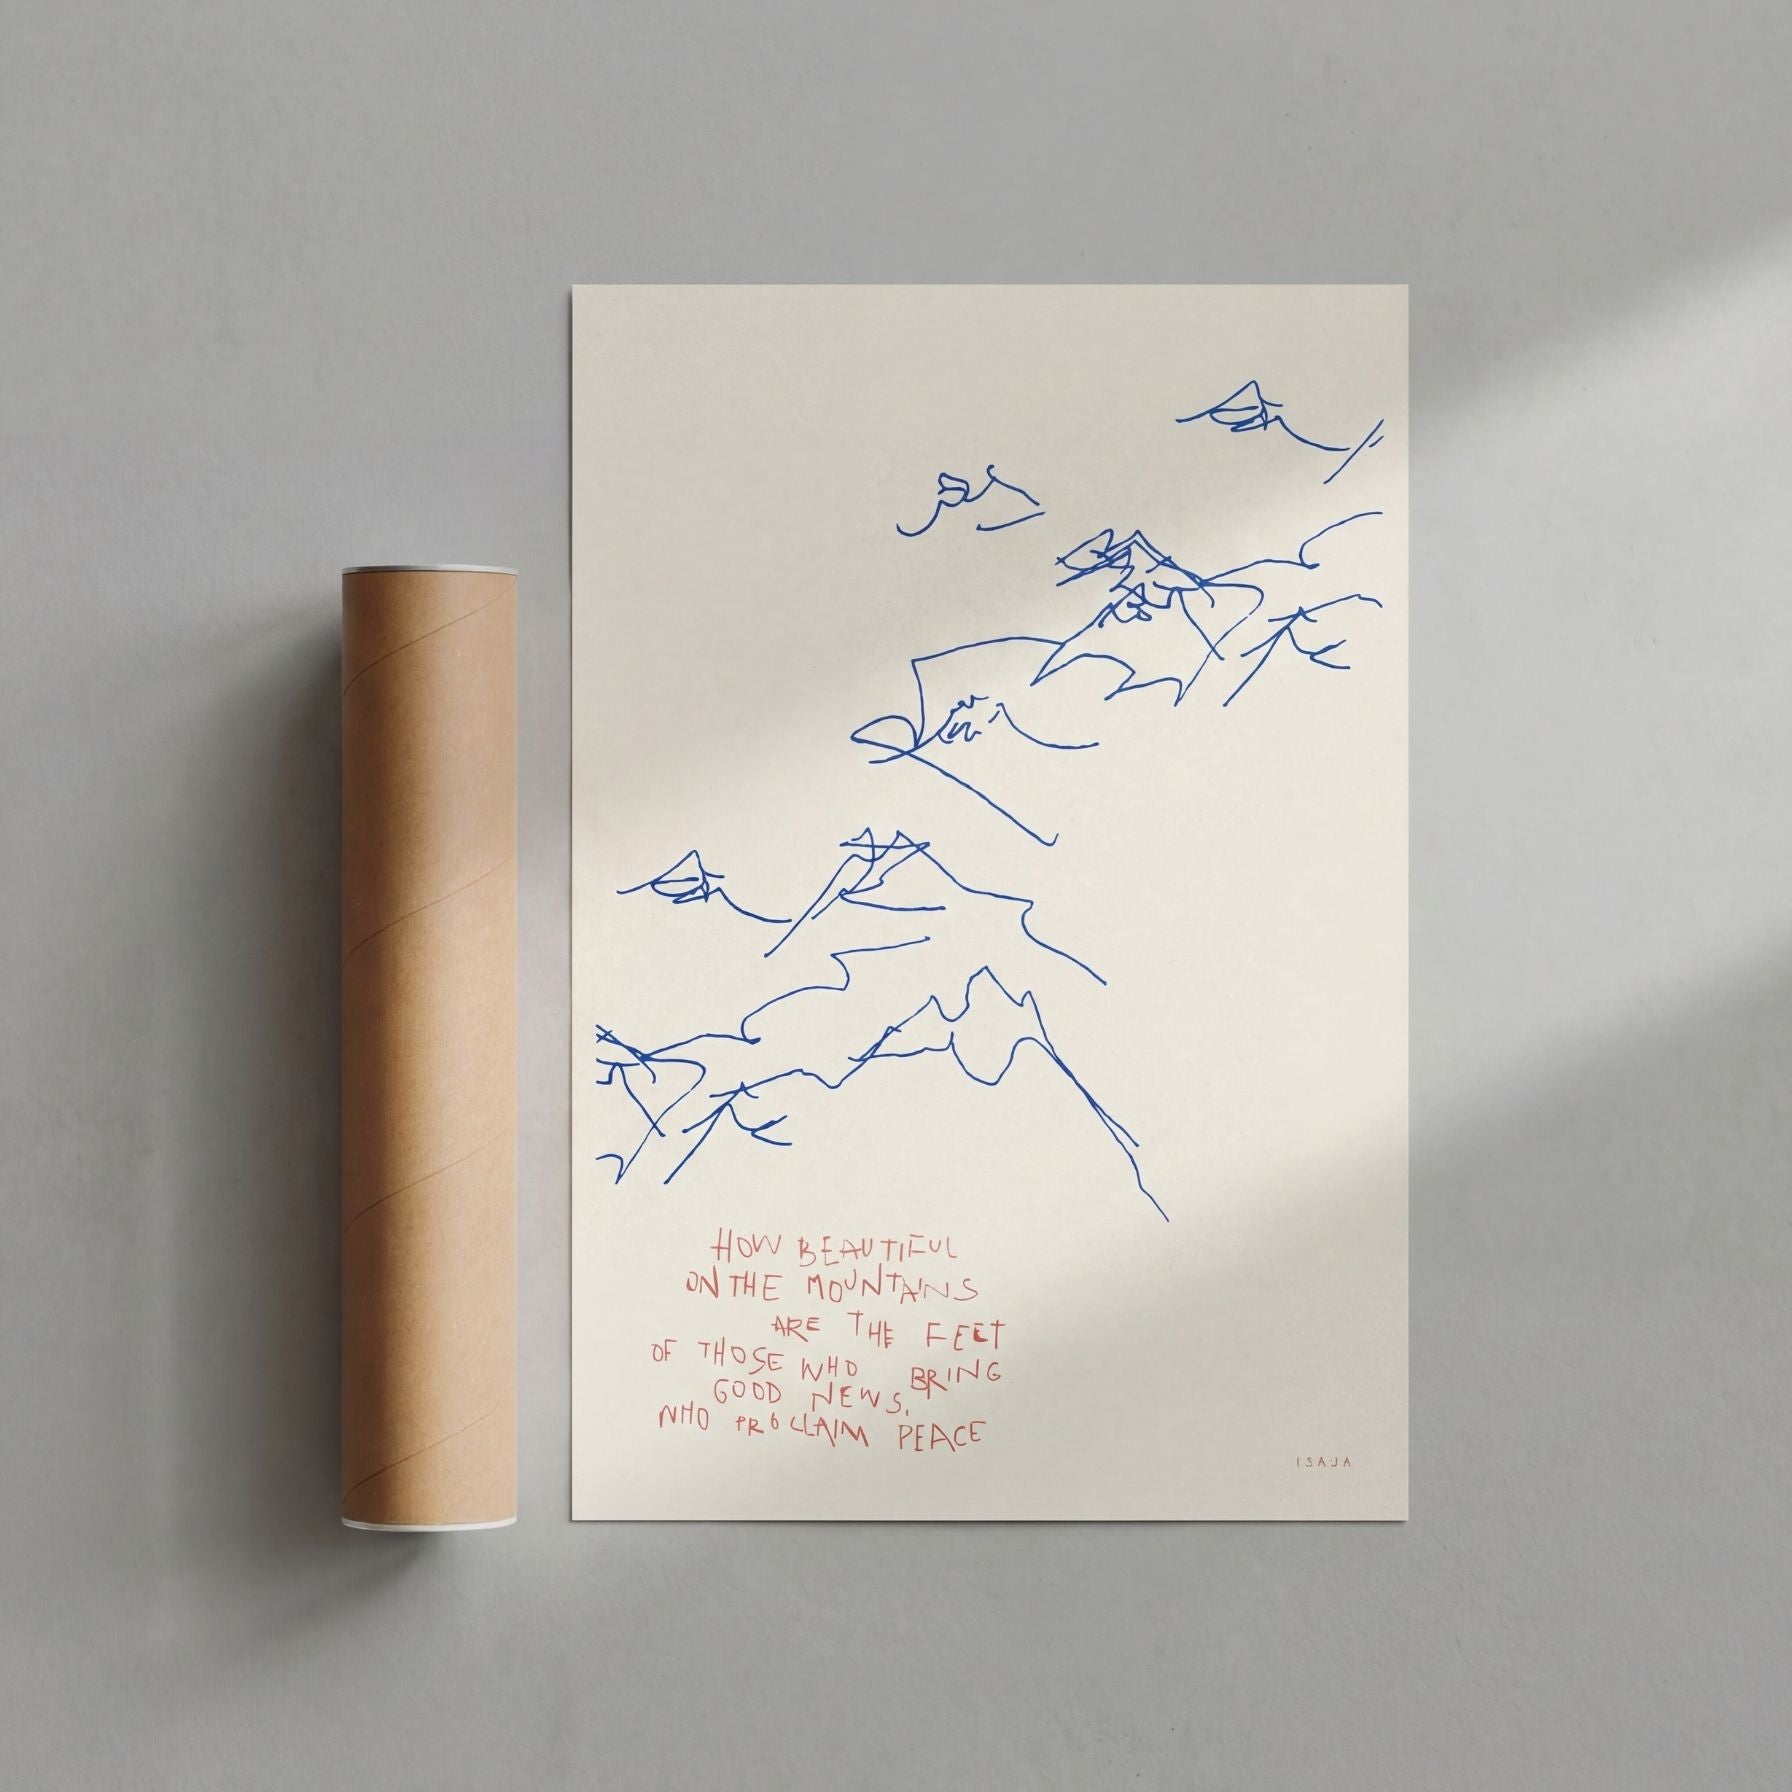 HOW BEAUTIFUL
ON THE MOUNTAINS
ARE THE FEET
OF THOSE WHO BRING
GOOD NEWS,
WHO PROCLAIM PEACE
ISAJA